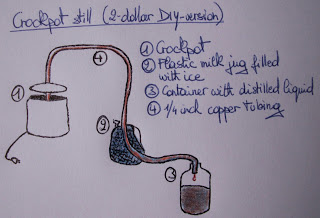 Crockpot still (2-dollar DIY-version)
① Crockpot
② Plastic milk jug filled
with ice
③ Container with distilled liquid
④ 1/4 inch copper tubing
④
①
②
③